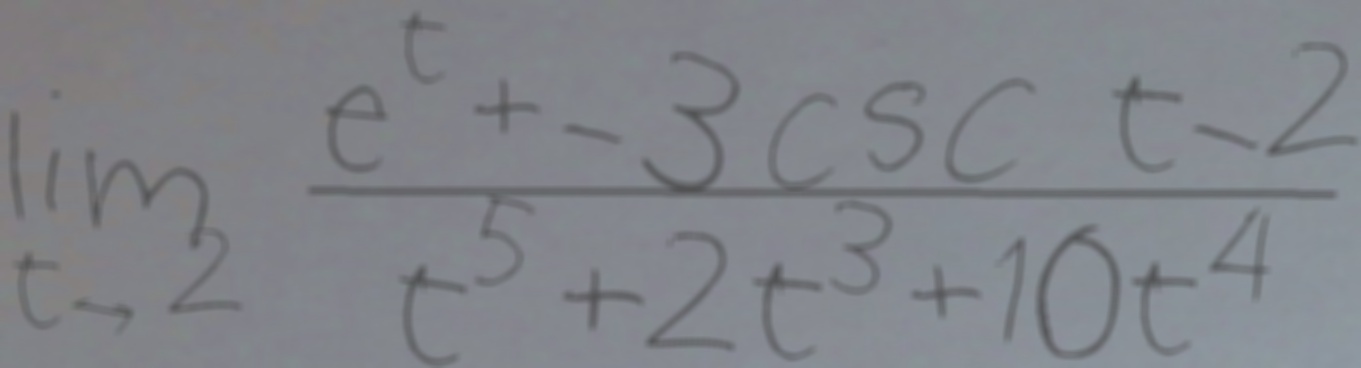 \lim_{t \to 2} \frac{e^t + -3 \csc t - 2}{t^5 + 2t^3 + 10t^4}